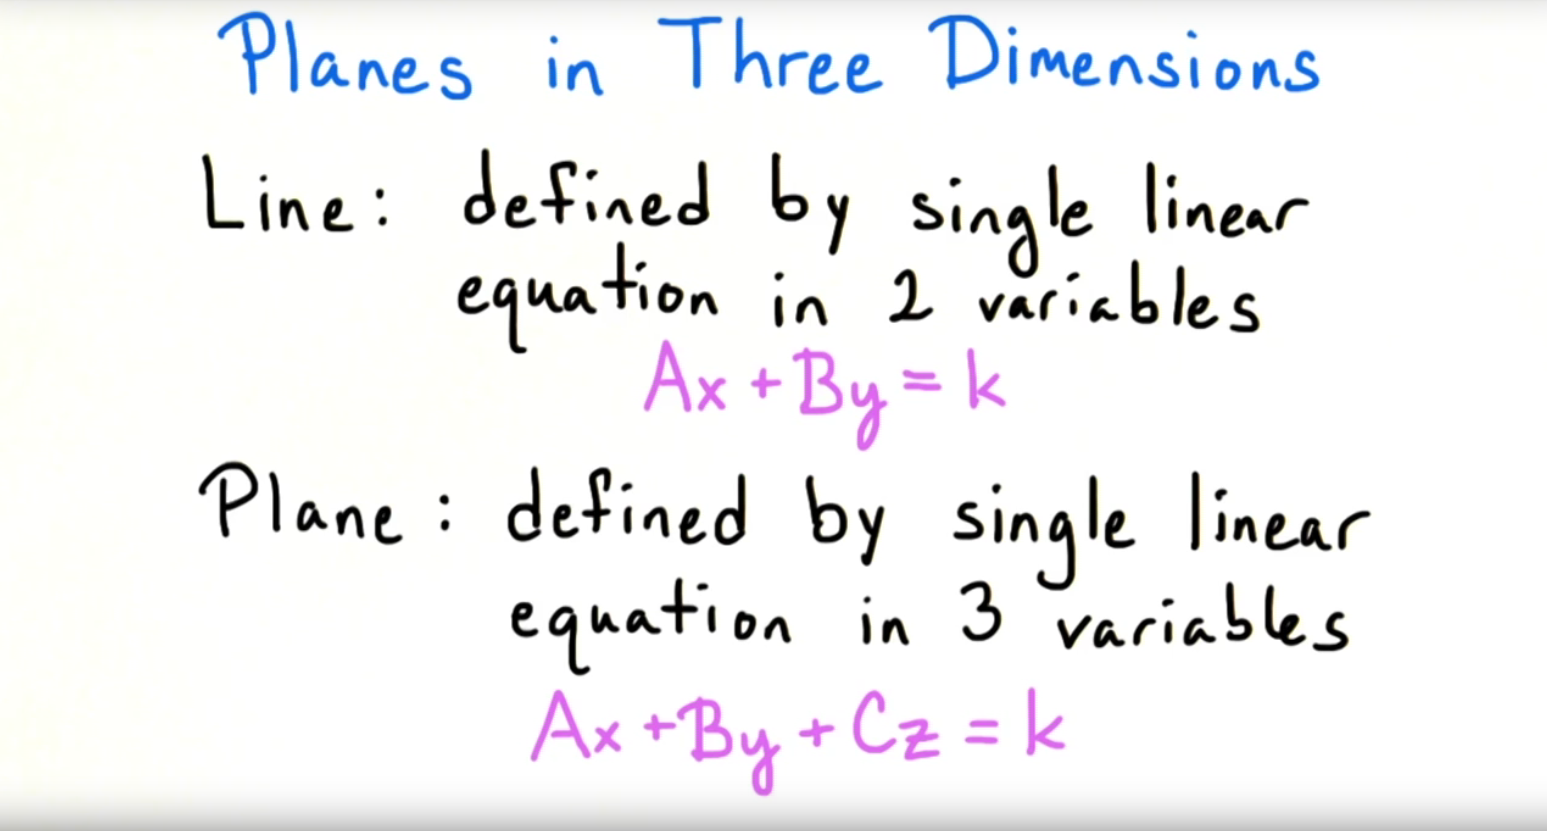 Planes in Three Dimensions
Line: defined by single linear
equation in 2 variables
Ax + By = k
Plane: defined by single linear
equation in 3 variables
Ax + By + Cz = k